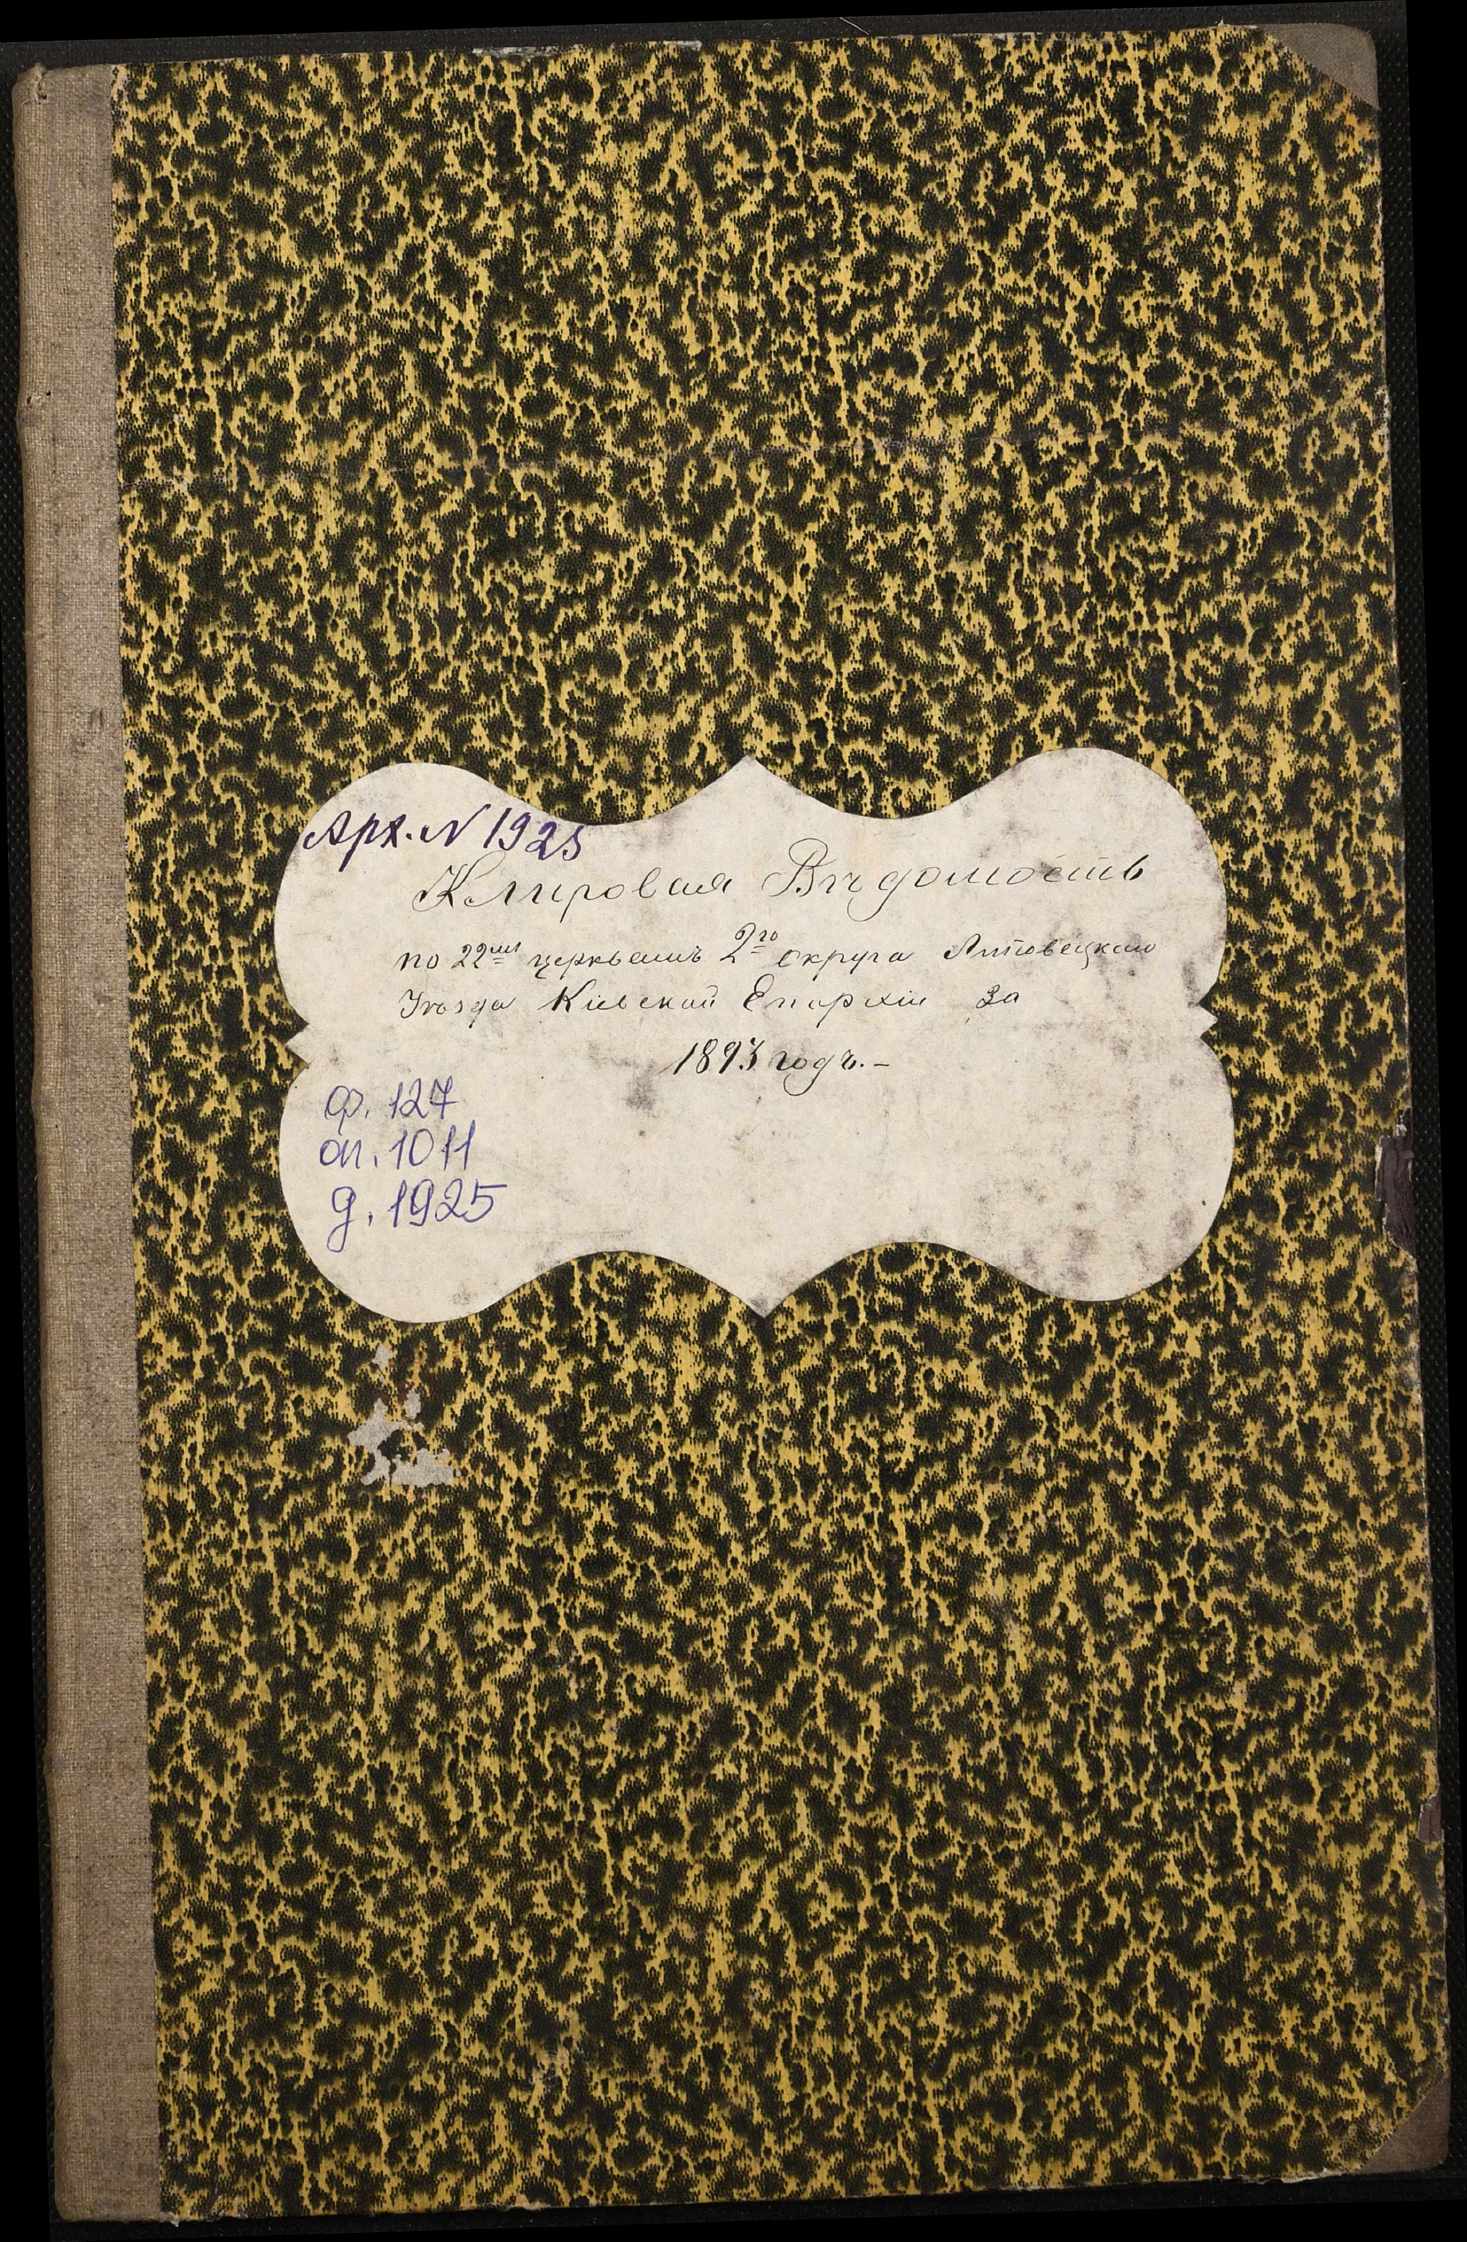 Арх. N 1925
Клировая Вѣдомость
по 22мъ церквамъ 2го округа Липовецкаго
Уѣзда Кіевской Епархіи за
1893 годъ.-
ф. 127
оп. 1011
д. 1925